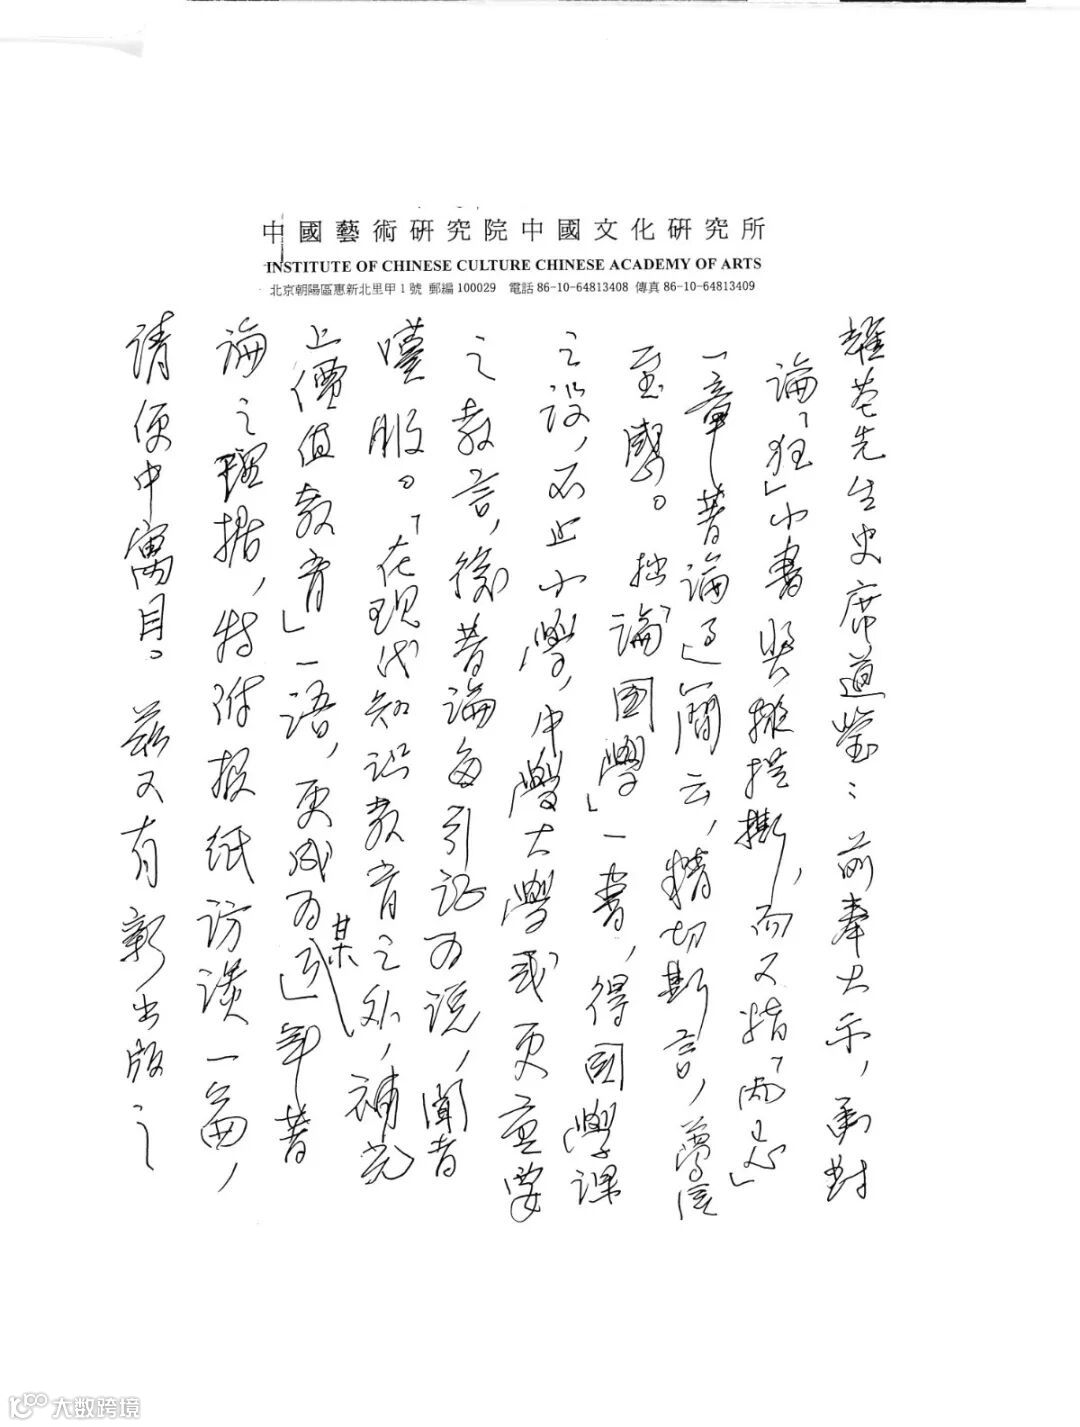 中國藝術研究院中國文化研究所
INSTITUTE OF CHINESE CULTURE CHINESE ACADEMY OF ARTS
北京朝陽區惠新北里甲1號 郵編100029 電話86-10-64813408 傳真86-10-64813409
耀基先生史席道鑒：前奉大示，承對
論「狂」小書奖掖提撕，而又指「两忘」
一章著論过简云，精切斯言，
至感。拙論「国學」一書，得国學课
之设，不止小學，中學大學或更重要
之教言，後著論每引记为说，闻者
嘆服。「在现代知识教育之外，補充
上價值教育」一语，更成为某近年著
論之理据，特附报纸访谈一篇，
请便中寓目。兹又有新出版之
大数跨境